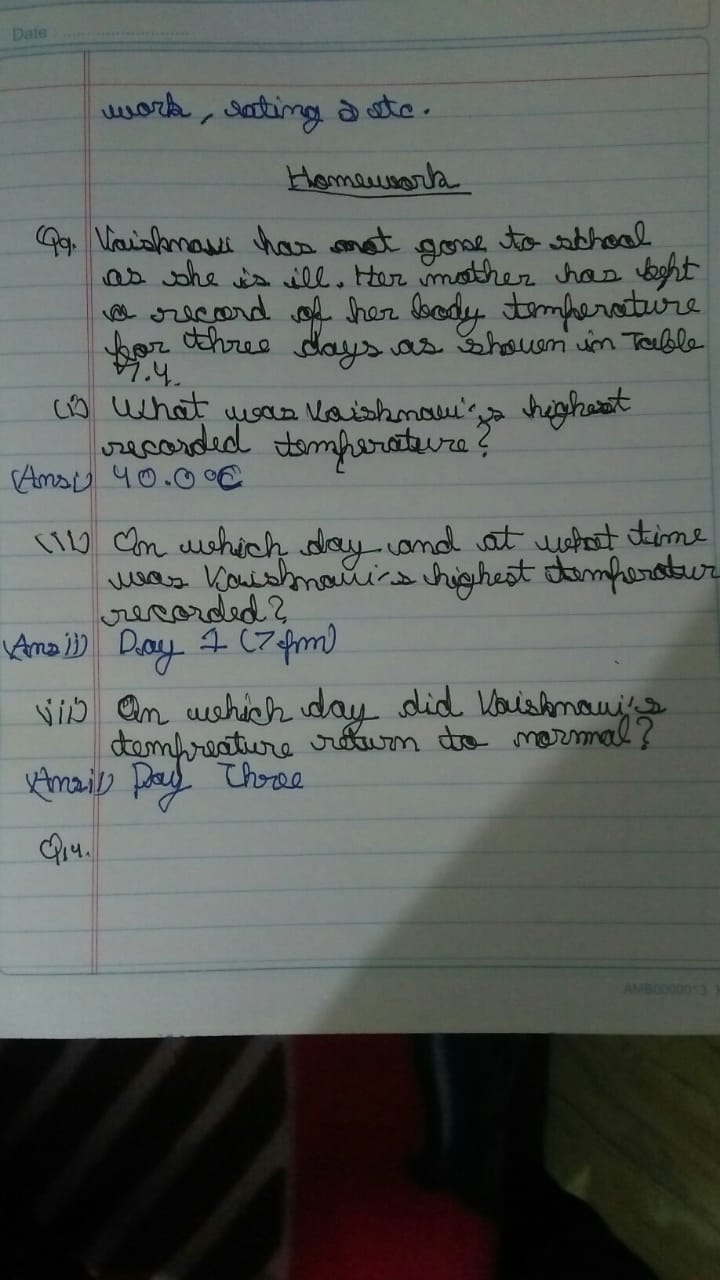 Date
work, eating & etc.
Homework
Q9. Vaishnavi has not gone to school
as she is ill. Her mother has kept
a record of her body temperature
for three days as shown in Table
7.4.
(i) What was Vaishnavi's highest
recorded temperature?
(Ans i) 40.0°C
(ii) On which day and at what time
was Vaishnavi's highest temperatur
recorded?
(Ans ii) Day 1 (7 pm)
iii) On which day did Vaishnavi's
tempreature return to normal?
(Ans iii) Day Three
Q14.
AMB0000013